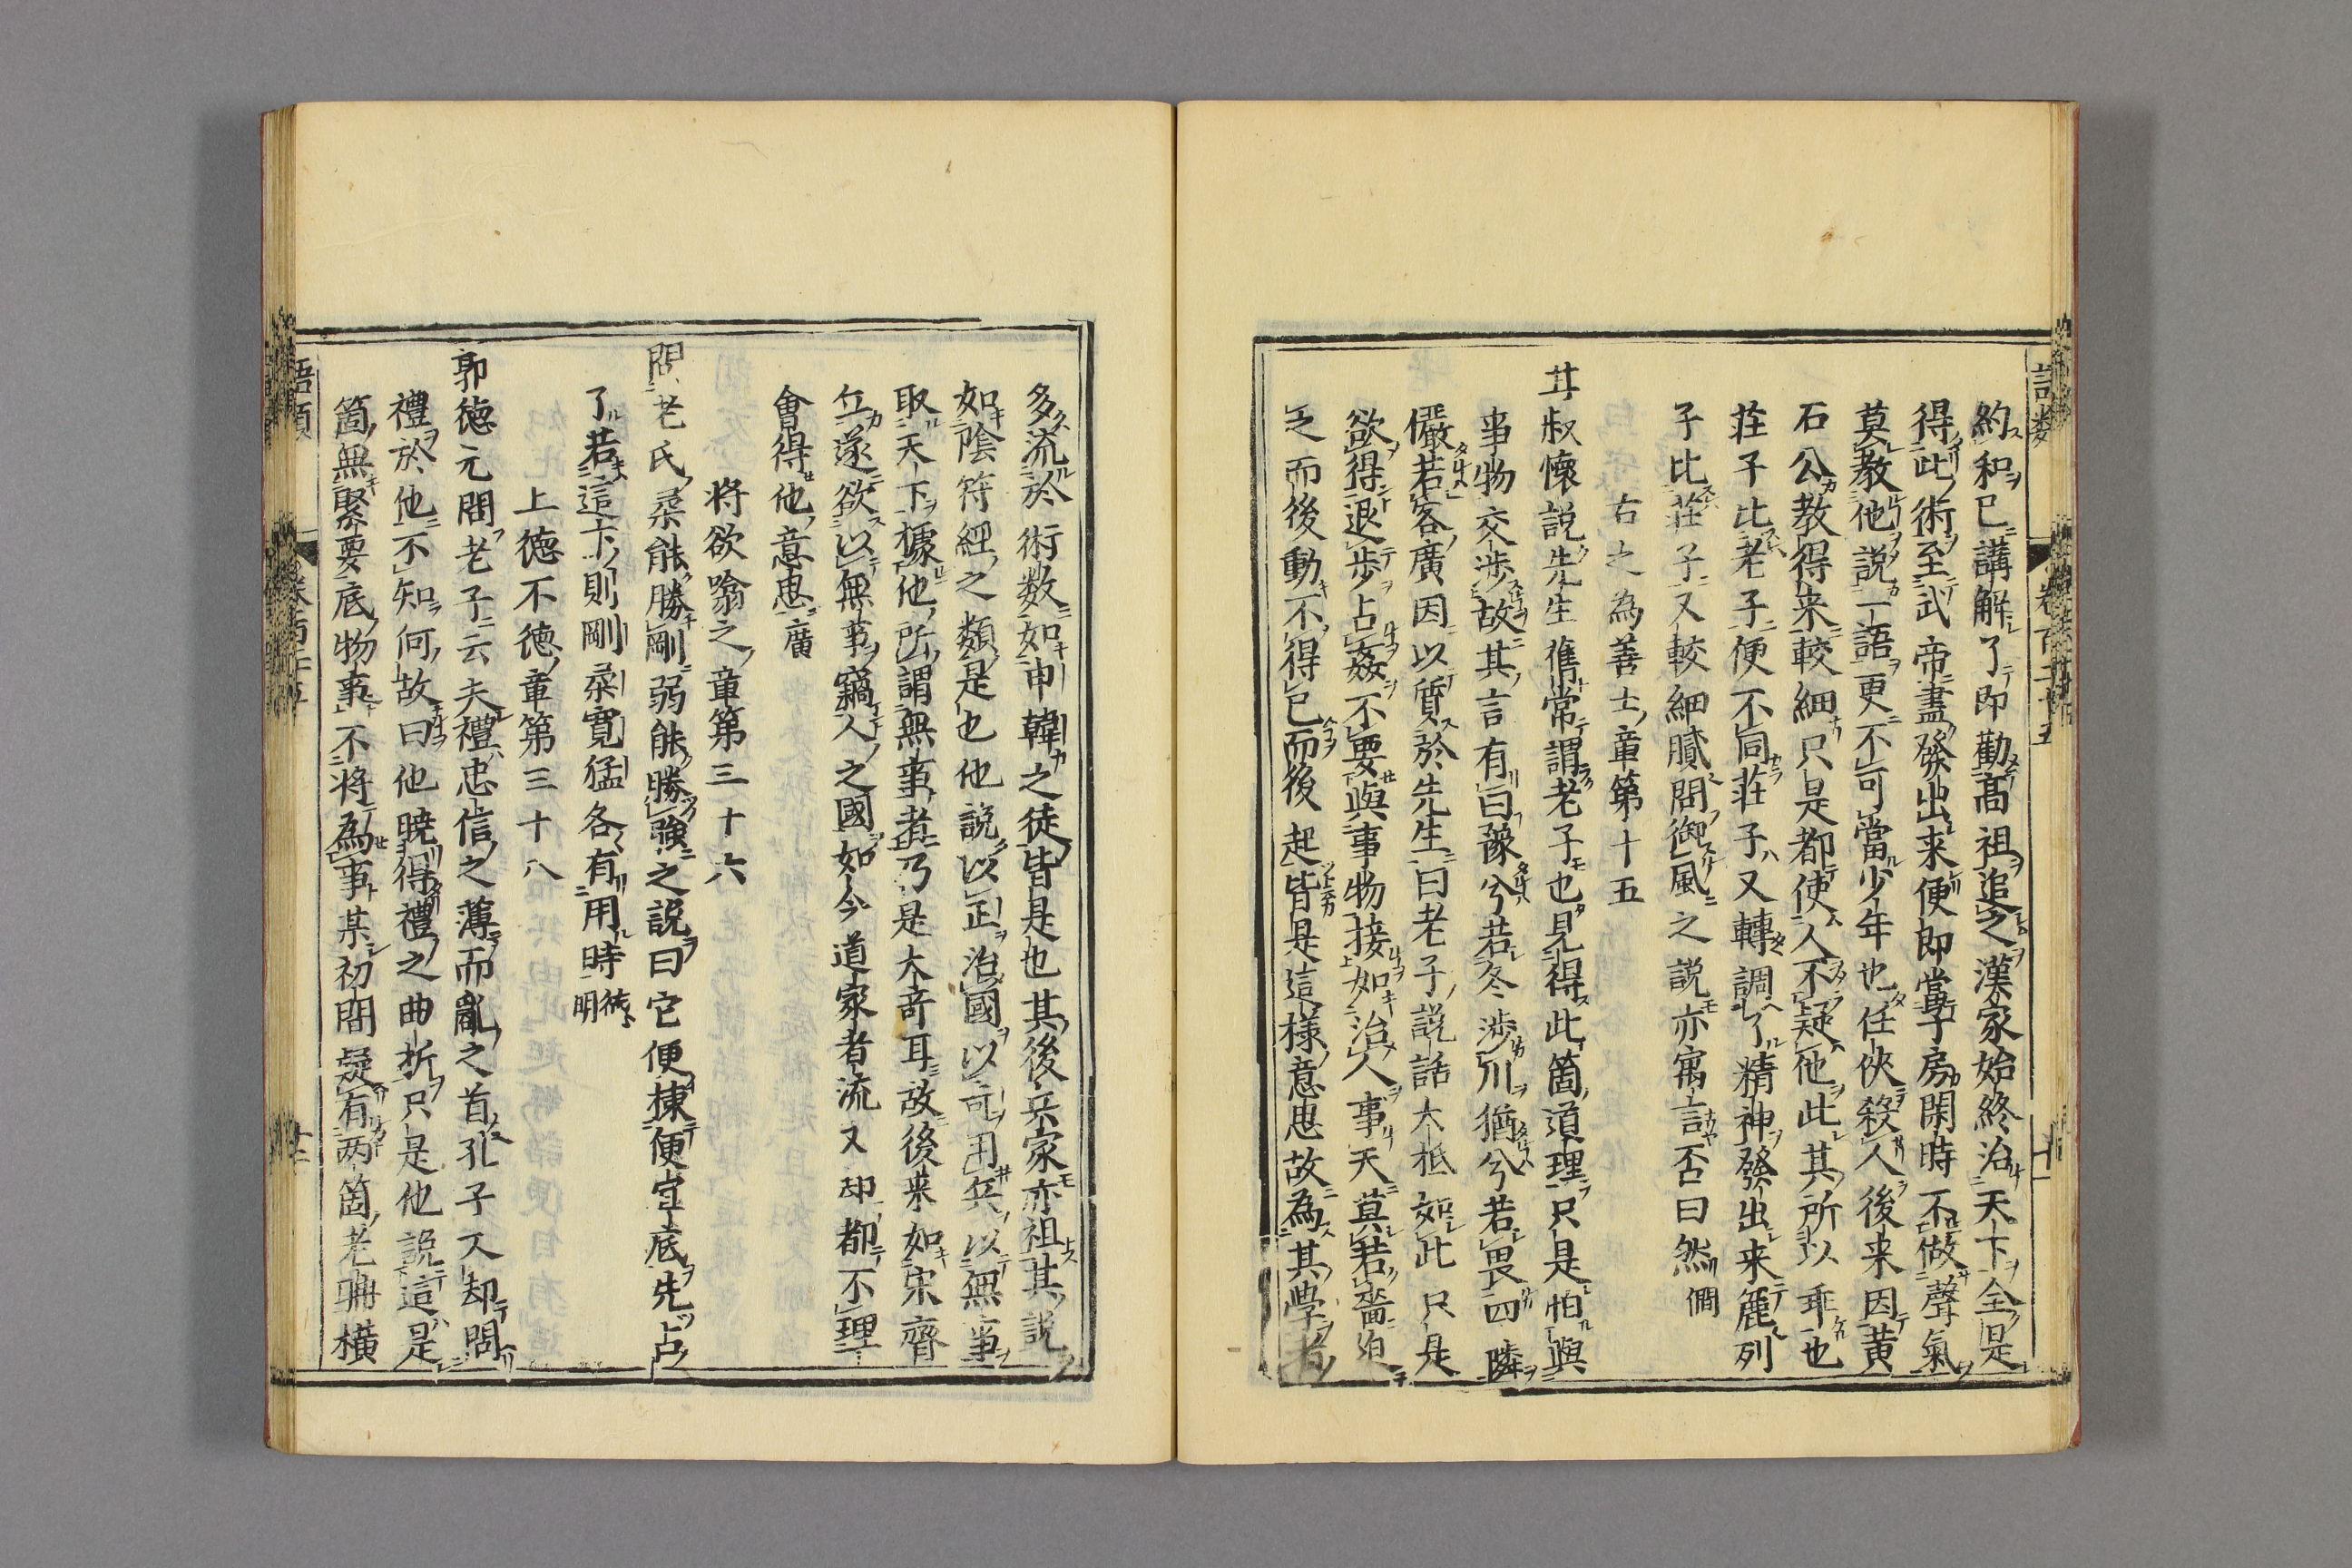 語類 卷百二十五 十一
約和已講解了即勸高祖追之漢家始終治天下全是
得此術至武帝盡發出来便即當子房閑時不做聲氣
莫教他說一語更不可當少年也任俠殺人後来因黄
石公教得来較細只是都使人不疑他此其所以乖也
荘子比老子便不同荘子又轉調了精神發出来麁列
子比荘子又較細膩問御風之說亦寓言否曰然僴
右之為善士章第十五
甘叔懷說先生舊常謂老子也見得此箇道理只是怕與
事物交渉故其言有曰豫兮若冬渉川猶兮若畏四隣
儼若客廣因以質於先生曰老子說話大抵如此只是
欲得退歩占姦不要與事物接如治人事天莫若嗇迫
之而後動不得已而後起皆是這樣意思故為其學者
多流於術数如申韓之徒皆是也其後兵家亦祖其說
如陰符經之類是也他說以正治國以奇用兵以無事
取天下據他所謂無事者乃是大奇耳故後来如宋齊
丘遂欲以無事竊人之國如今道家者流又却都不理
會得他意思廣
将欲噏之章第三十六
問老氏柔能勝剛弱能勝強之說曰它便揀便宜底先占
了若這下則剛柔寛猛各有用時德明
上德不德章第三十八
郭德元問老子云夫禮忠信之薄而亂之首孔子又却問
禮於他不知何故曰他曉得禮之曲折只是他說這是
箇無緊要底物事不将為事某初間疑有两箇老耼横
語類 卷百二十五 十二